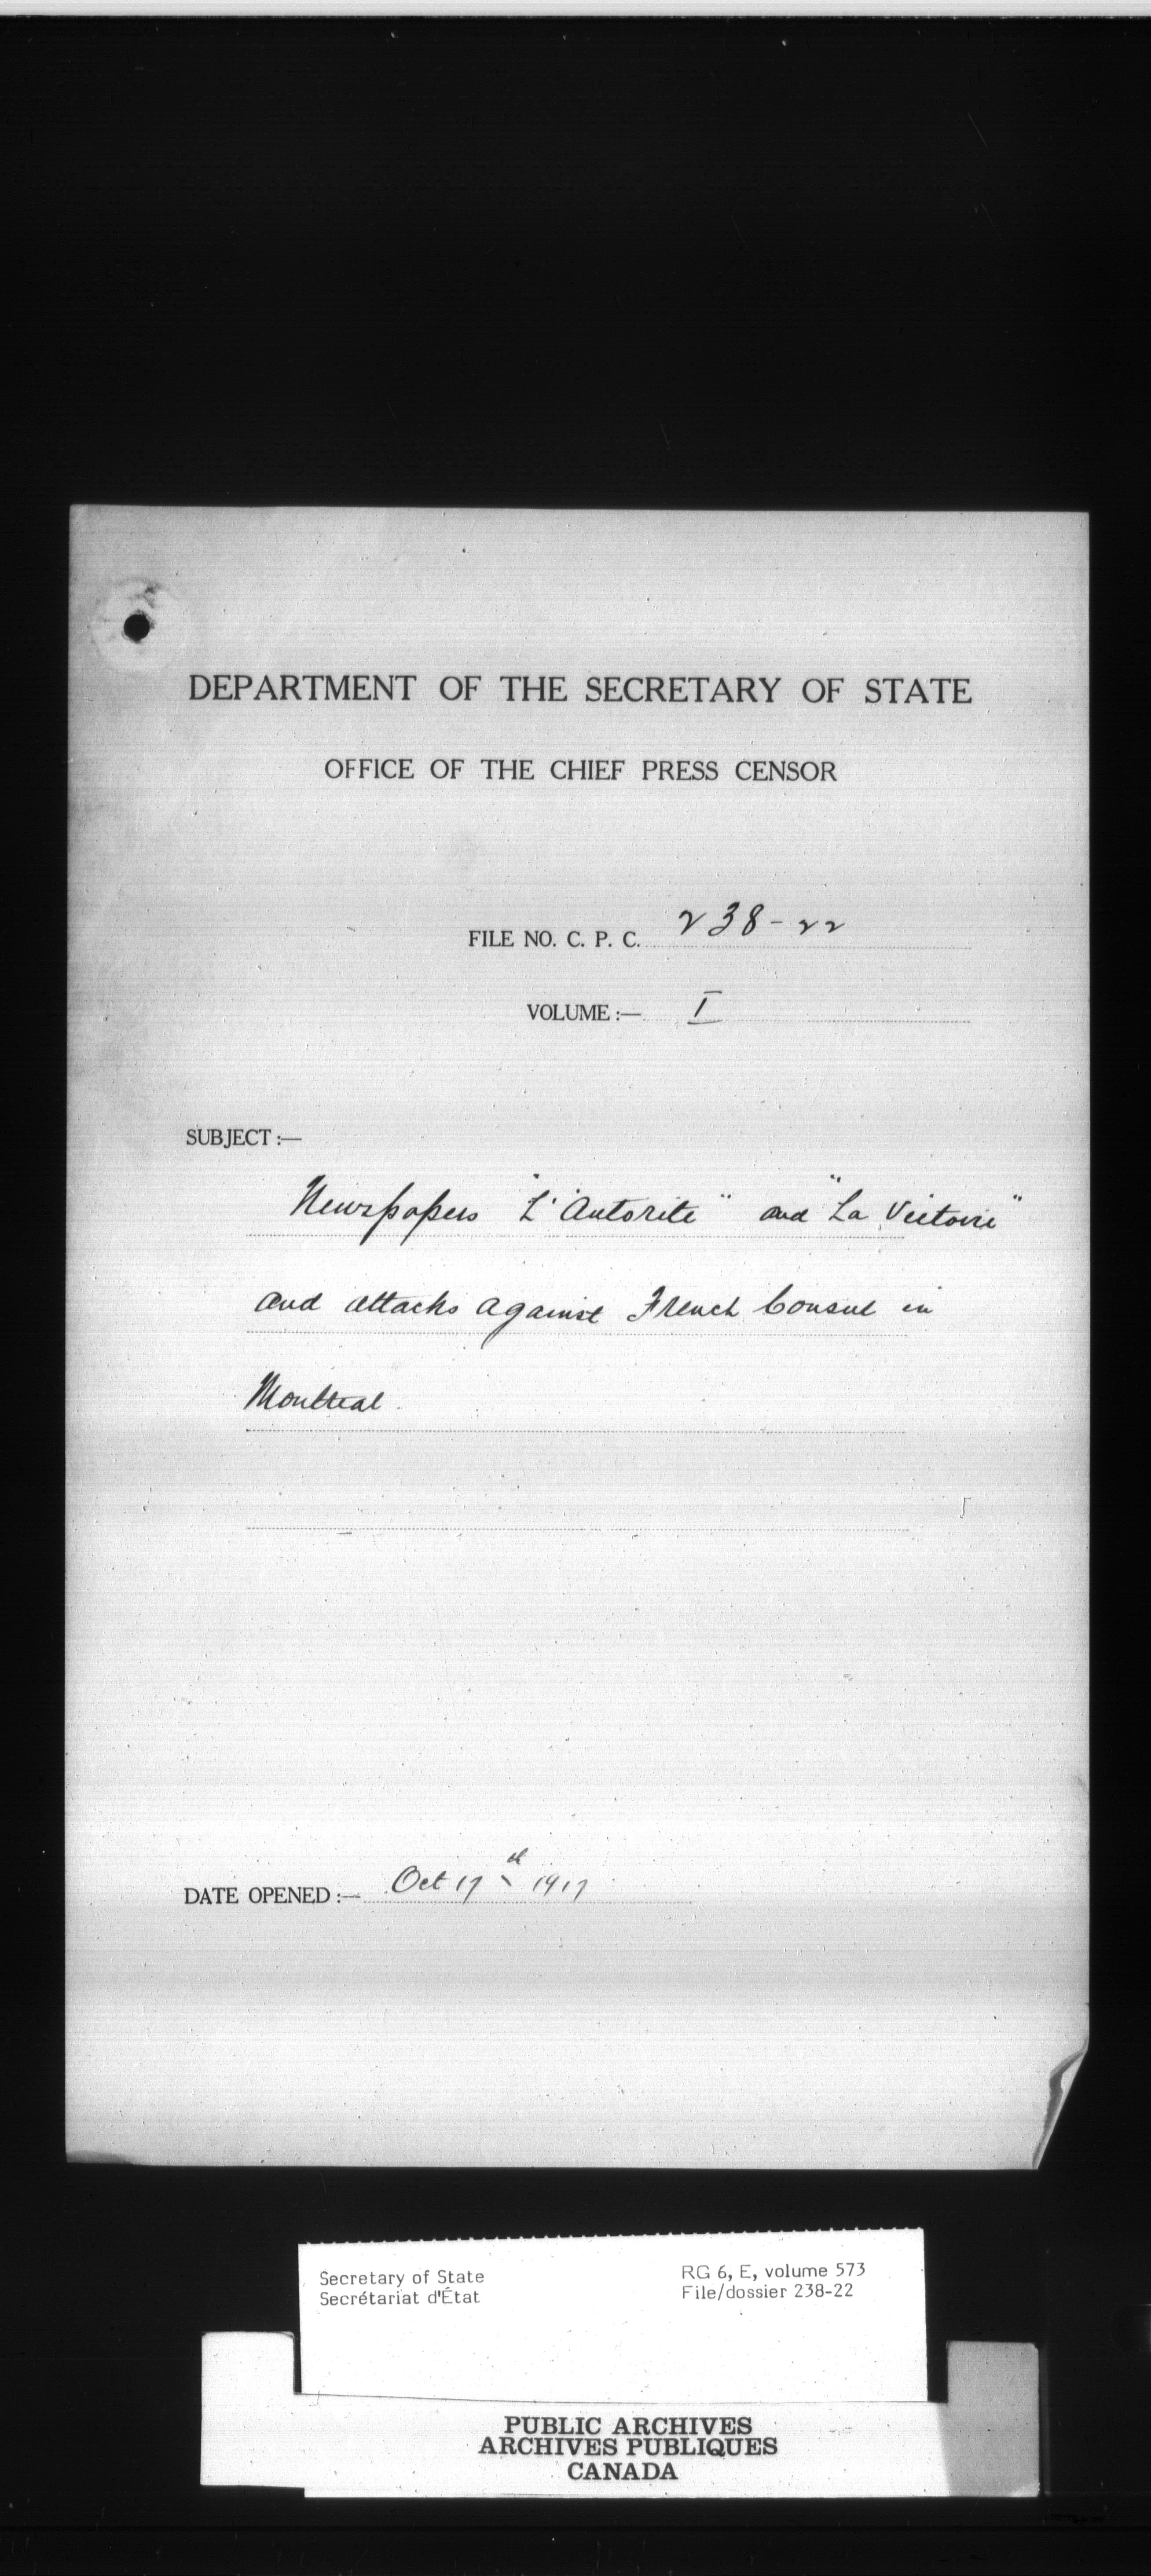 DEPARTMENT OF THE SECRETARY OF STATE
OFFICE OF THE CHIEF PRESS CENSOR
FILE NO. C. P. C. 238-22
VOLUME :— I
SUBJECT :—
Newspapers "L'Autorite" and "La Victoire"
and attacks against French Consul in
Montreal.
DATE OPENED :— Oct 17th 1917
Secretary of State
Secrétariat d'État
RG 6, E, volume 573
File/dossier 238-22
PUBLIC ARCHIVES
ARCHIVES PUBLIQUES
CANADA